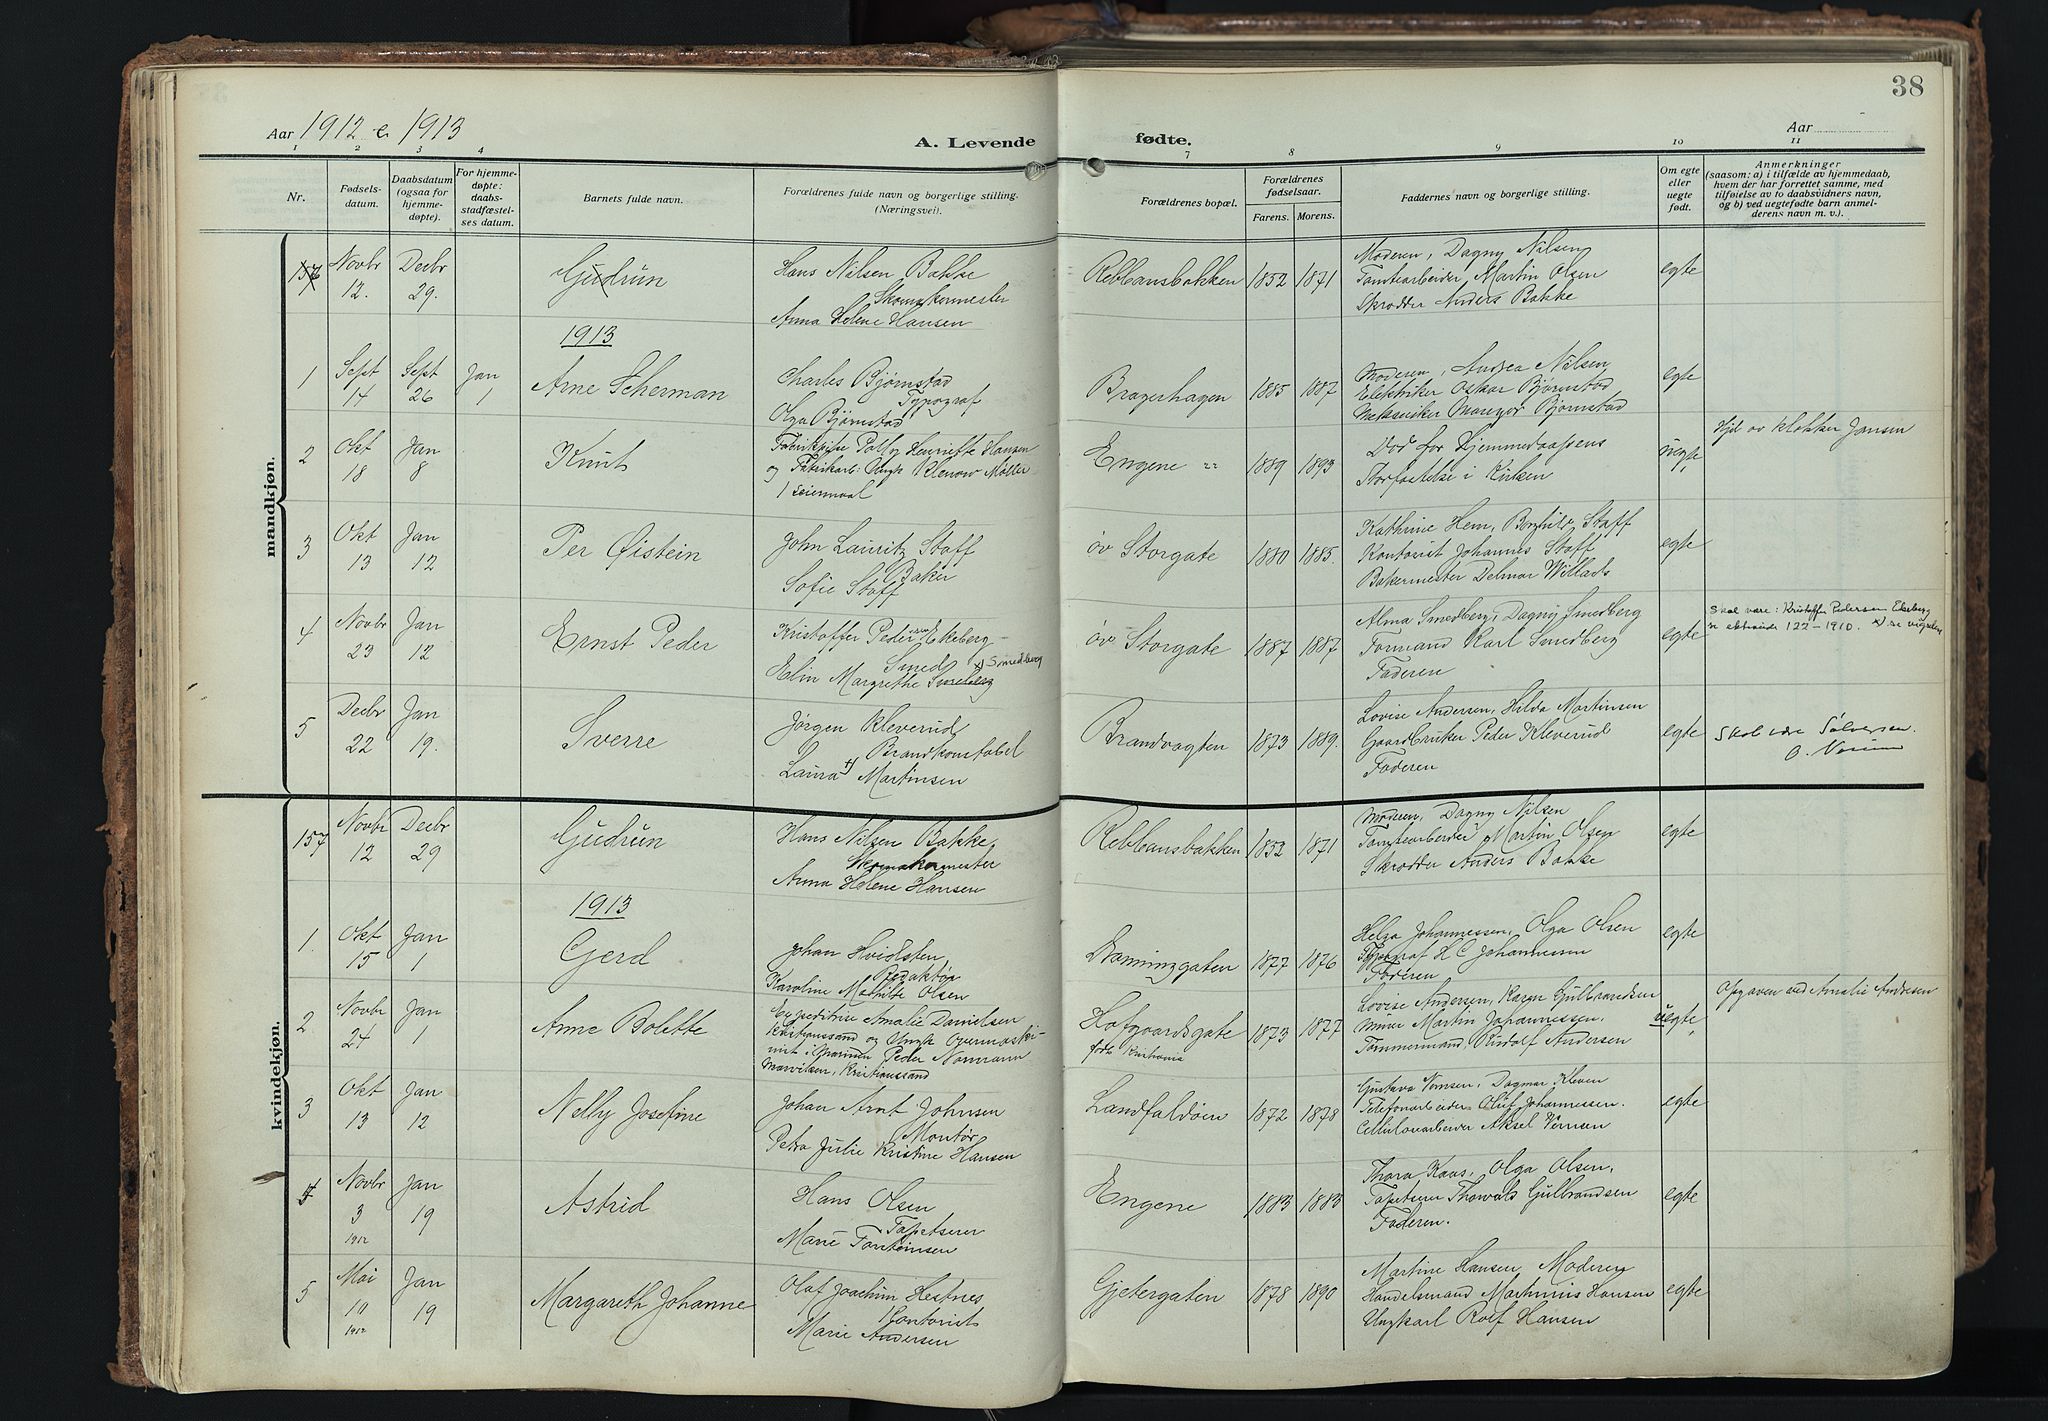 38
Aar 1912 & 1913
A. Levende fødte.
Aar
1 2 3 4 7 8 9 10 11
Nr.
Fødsels-
datum.
Daabsdatum
(ogsaa for
hjemme-
døpte).
For hjemme-
døpte:
daabs-
stadfæstel-
ses datum.
Barnets fulde navn.
Forældrenes fulde navn og borgerlige stilling.
(Næringsvei).
Forældrenes bopæl.
Forældrenes
fødselsaar.
Farens. Morens.
Faddernes navn og borgerlige stilling.
Om egte
eller
uegte
født.
Anmerkninger
(saasom: a) i tilfælde av hjemmedaab,
hvem der har forrettet samme, med
tilføielse av to daabsvidners navn,
og b) ved uegtefødte barn anmel-
derens navn m. v.).
mandkjøn.
157 Novbr 12. Decbr 29. Gudrun
Hans Nilsen Bakke
Skomakermester
Anna Helene Hansen
Rebbansbakken 1852 1871
Moderen, Dagny Nilsen
Tomtearbeider Martin Olsen
Skrædder Anders Bakke
egte
1913
1 Sept 14 Sept 26 Jan 1 Arne Scherman
Charles Bjørnstad
Typograf
Olga Bjørnstad
Bragerhagen 1885 1887
Moderen, Andrea Nilsen
Elektriker Oskar Bjørnstad
Bjørnstad
egte
2 Okt 18 Jan 8 Knut
Henriette Hansen
og Fabrikarb. Klenow Møller
Engene 1889 1893
Død før Hjemmedaapens
Storfæstelse i Kirken
uegte
Hjd av klokker Jansen
3 Okt 13 Jan 12 Per Øistein
John Lauritz Staff
Baker
Sofie Staff
øv Storgate 1880 1885.
Kathrine Hem, Borghild Staff
Kontorist Johannes Staff
Bakermester Delmar Willads
egte
4 Novbr 23 Jan 12 Ernst Peder
Kristoffer Pedersen Ekeberg
Smed x) Smedberg
Elin Margrethe Smedberg
øv Storgate 1887 1887
Alma Smedberg, Dagny Smedberg
Formand Karl Smedberg
Faderen
egte
Skal være: Kristoffer Pedersen Ekeberg
se 122–1910. x) se vigselen
5 Decbr 22 Jan 19. Sverre
Jørgen Kleverud
Brandkonstabel
Laura x) Martinsen
Brandvagten 1873 1889.
Lovise Andersen, Hilda Martinsen
Gaardbruker Peder Kleverud
Faderen
egte
Skal være Sølversen.
kvindekjøn.
157 Novbr 12 Decbr 29 Gudrun
Hans Nilsen Bakke,
Skomakermester
Anna Helene Hansen
Rebbansbakken 1852 1871
Moderen, Dagny Nilsen
Tomtearbeider Martin Olsen
Skrædder Anders Bakke
egte
1913
1. Okt 15 Jan 1 Gerd
Johan Hvidsten,
Redaktør
Karoline Mathilde Olsen
Danninggaten 1877 1876
Helga Johannessen, Olga Olsen
Typograf H C Johannesen
Faderen
egte
2 Novbr 24 Jan 1 Anne Bolette
Expeditrice Amalie Danielsen
Kristianssand og Ungk
Peder Normann
Kristianssand
Hofgaardsgate 1873 1877
født Kristiania
Lovise Andersen, Karen Gulbrandsen
Martin Johannessen,
Tømmermand Rudolf Andersen
uegte
Opgaven ved Amalie Andresen
3 Okt 13 Jan 12 Nelly Josefine
Johan Arnt Johnsen
Montør
Petra Julie Kristine Hansen
Landfaldøen 1872 1878
Gustava Vernsen, Dagmar Kleven
Telefonarbeider Oluf Johannessen.
Cellulosearbeider Aksel Vernsen
egte
4 Novbr 3 1912 Jan 19 Astrid
Hans Olsen
Tapetserer
Marie Torsteinsen
Engene 1883 1883
Thora Kaas, Olga Olsen,
Tapetserer Thorvald Gulbrandsen
Faderen.
egte
5 Mai 10 1912 Jan 19 Margareth Johanne
Olaf Joachim Hestnes
Kontorist
Marie Andersen
Gjetergaten 1878 1890
Martine Hansen, Moderen
Handelsmand Martinius Hansen
Ungkarl Rolf Hansen
egte